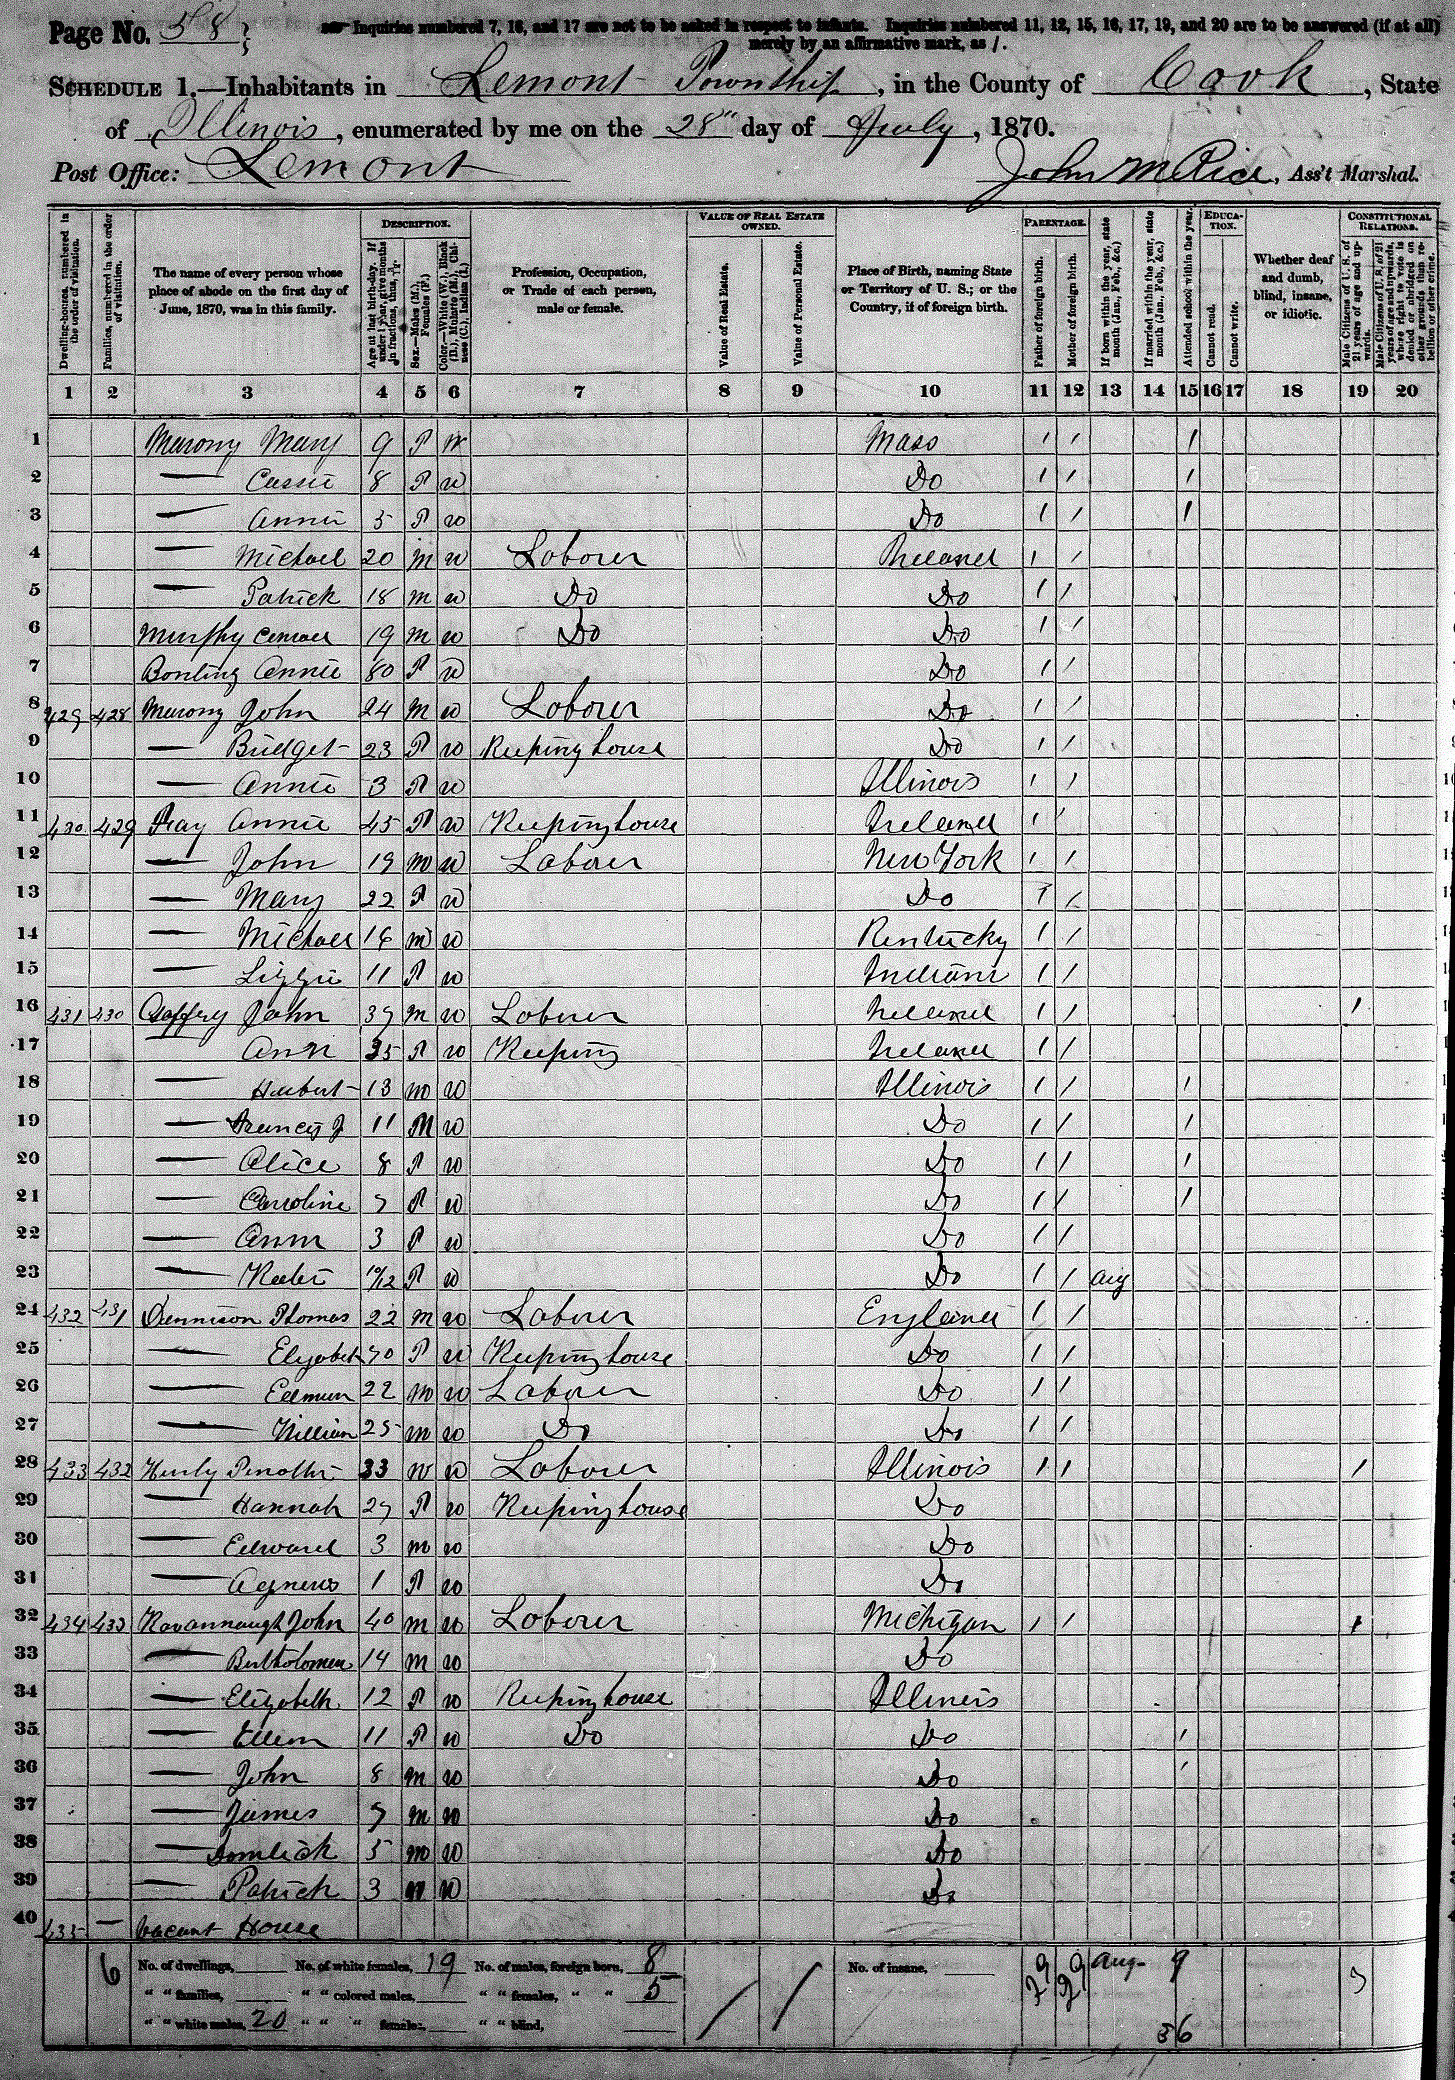 Page No. 58
Inquiries numbered 7, 16, and 17 are not to be asked in respect to infants. Inquiries numbered 11, 12, 15, 16, 17, 19, and 20 are to be answered (if at all)
merely by an affirmative mark, as /.
SCHEDULE 1.—Inhabitants in Lemont Township, in the County of Cook, State
of Illinois, enumerated by me on the 28" day of July, 1870.
Post Office: Lemont John M Rice, Ass't Marshal.
Dwelling-houses, numbered in the order of visitation.
Families, numbered in the order of visitation.
The name of every person whose place of abode on the first day of June, 1870, was in this family.
DESCRIPTION.
Age at last birth-day. If under 1 year, give months in fractions, thus, 3/12.
Sex.—Males (M.), Females (F.)
Color.—White (W.), Black (B.), Mulatto (M.), Chinese (C.), Indian (I.)
Profession, Occupation, or Trade of each person, male or female.
VALUE OF REAL ESTATE OWNED.
Value of Real Estate.
Value of Personal Estate.
Place of Birth, naming State or Territory of U. S.; or the Country, if of foreign birth.
PARENTAGE.
Father of foreign birth.
Mother of foreign birth.
If born within the year, state month (Jan., Feb., &c.)
If married within the year, state month (Jan., Feb., &c.)
Attended school within the year.
EDUCATION.
Cannot read.
Cannot write.
Whether deaf and dumb, blind, insane, or idiotic.
CONSTITUTIONAL RELATIONS.
Male Citizens of U. S. of 21 years of age and upwards.
Male Citizens of U. S. of 21 years of age and upwards, where right to vote is denied or abridged on other grounds than rebellion or other crime.
1 2 3 4 5 6 7 8 9 10 11 12 13 14 15 16 17 18 19 20
1 Marony Mary 9 F W Mass / / /
2 — Cassie 8 F W Do / / /
3 — Annie 5 F W Do / / /
4 — Michael 20 M W Laborer Ireland / /
5 — Patrick 18 M W Do Do / /
6 Murphy 19 M W Do Do / /
7 Bonting Annie 80 F W Do / /
8 429 428 Marony John 24 M W Laborer Do / /
9 — Bridget 23 F W Keeping house Do / /
10 — Annie 3 F W Illinois / /
11 430 429 Annie 45 F W Keeping house Ireland / /
12 — John 19 M W Laborer New York / /
13 — Mary 22 F W Do / /
14 — Michael 16 M W Kentucky / /
15 — Lizzie 11 F W Indiana / /
16 431 430 Gaffery John 37 M W Laborer Ireland / / /
17 — Ann 35 F W Keeping Ireland / /
18 — Hubert 13 M W Illinois / / /
19 — Francis J 11 M W Do / / /
20 — Alice 8 F W Do / / /
21 — Caroline 7 F W Do / / /
22 — Ann 3 F W Do / /
23 — Katie 10/12 F W Do / / Aug
24 432 431 Dennison Thomas 22 M W Laborer England / /
25 — Elizabeth 70 F W Keeping house Do / /
26 — Edmun 22 M W Laborer Do / /
27 — William 25 M W Do Do / /
28 433 432 Hurly 33 M W Laborer Illinois / / /
29 — Hannah 27 F W Keeping house Do
30 — Edward 3 M W Do
31 — Agnews 1 F W Do
32 434 433 Kavannaugh John 40 M W Laborer Michigan / / /
33 — Bartholomew 14 M W Do
34 — Elizabeth 12 F W Keeping house Illinois
35 — Ellen 11 F W Do Do /
36 — John 8 M W Do /
37 — James 7 M W Do
38 — 5 M W Do
39 — Patrick 3 M W Do
40 435 — Vacant House
6 No. of dwellings, No. of white females, 19 No. of males, foreign born, 8 No. of insane, 29 29 Aug 9 3
" " families, " " colored males, " " females, " " 5
" " white males, 20 " " " females, " " blind, 36